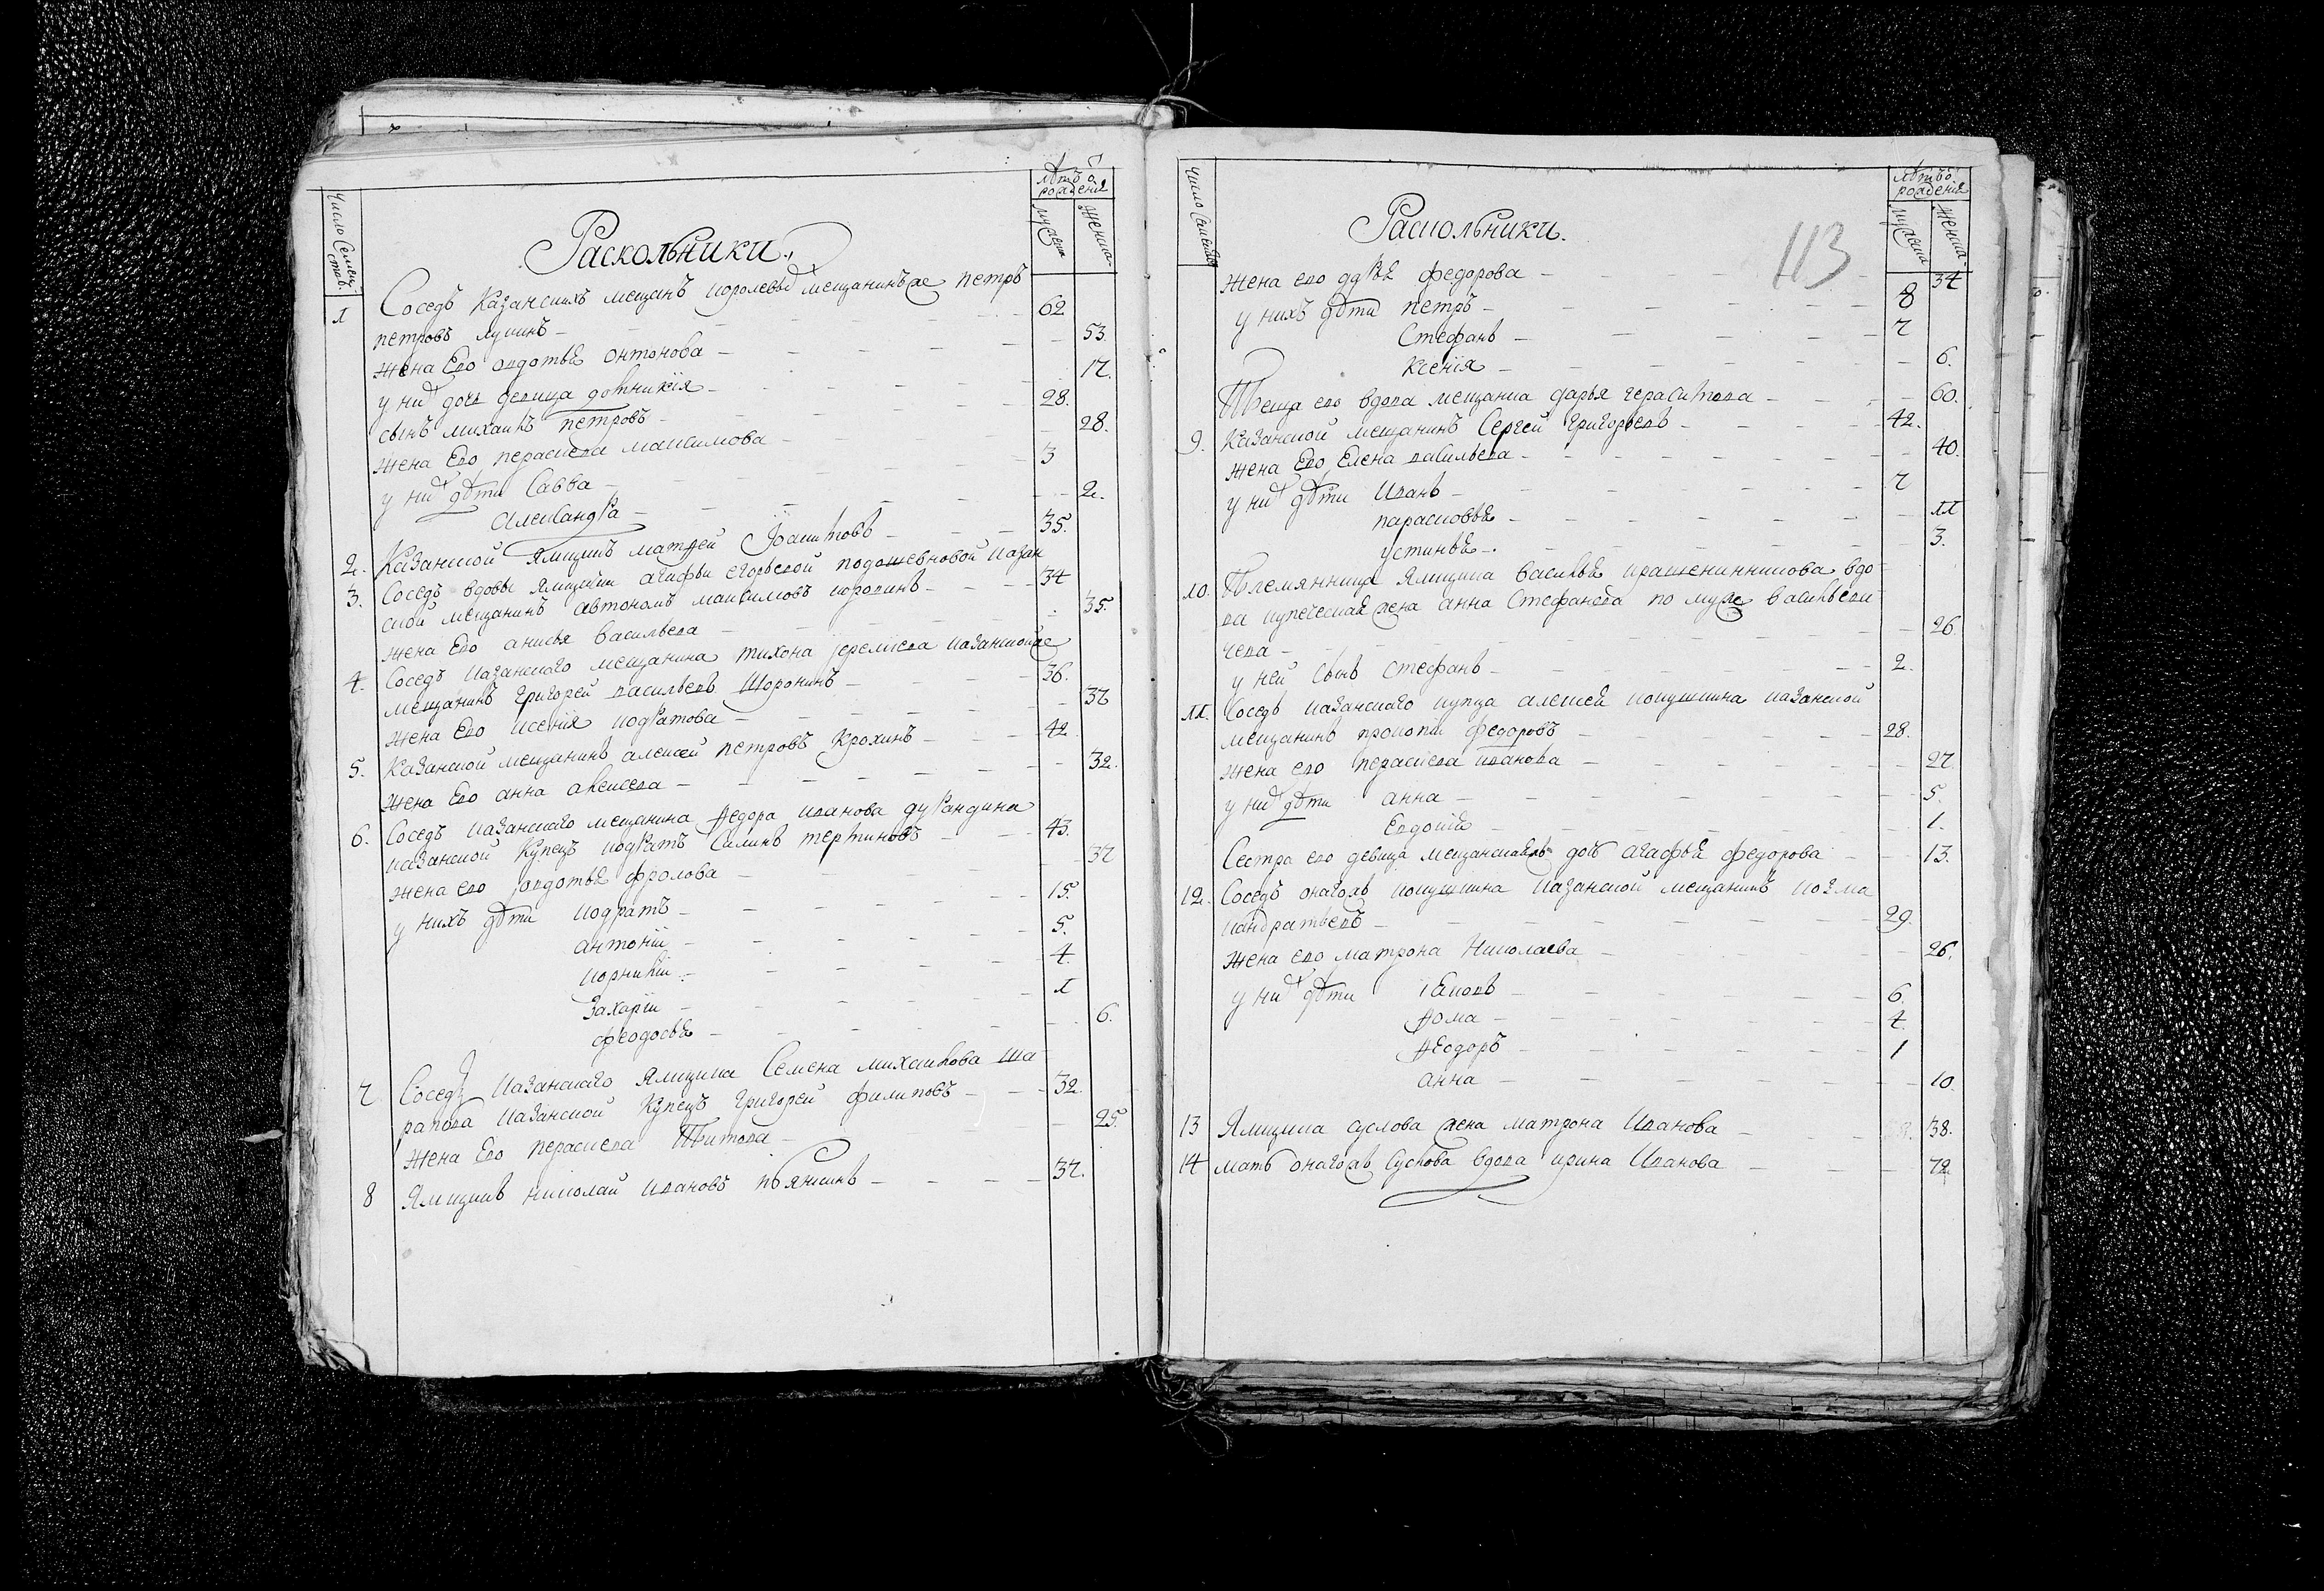 Число Семействъ.
лѣтъ ѿ рождения
мужеска
женска.
Раскольники.
1 Соседъ Казанскихъ мещанъ королевыхъ мещанинъ же петръ
петровъ лукинъ - 62
жена Ево овдотья онтонова - 53.
у них дочь девица домникия - 17.
сынъ михаилъ петровъ - 28.
жена Ево парасκева максимова - 28.
у них дѣти Савва - 3
александра - 2.
2. Казанской Ямщикъ матвей - 35.
3. Соседъ вдовы Ямщицки агафьи егорьевой подошевновой казан
ской мещанинъ автономъ максимовъ королинъ - 34
жена Ево анисья васильева - 35.
4. Соседъ казанского мещанина тихона иеремеева казанской же
мещанинъ григорей васильевъ Шоронинъ - 36.
жена Ево ксения кодратова - 37
5. Казанской мещанинъ алексей петровъ Крохинъ - 42
жена Ево анна алексеева - 32.
6. Соседъ казанского мещанина Ѳедора иванова дурандина
казанской Купецъ кодратъ Силинъ - 43.
жена ево овдотья фролова - 37
у нихъ дѣти кодратъ - 15.
антоній - 5.
корнилій - 4.
Захарій - 1
феодосья - 6.
7 Соседъ казанского Ямщика Семена михаилова ша
рапова казанской Купецъ григорей филиповъ - 32.
жена Ево параскева Титова - 25.
8 Ямщикъ николай ивановъ - 37.
Число Семействъ
лѣтъ ѿ рождения
мужеска
женска.
Раскольники.
113
жена ево дарья федорова - 34
у нихъ дѣти петръ - 8
Стефанъ - 7
Ксенія - 6.
Теща ево вдова мещанка дарья герасимова - 60.
9. Казанской мещанинъ Сергей григорьевъ - 42.
жена Ево Елена васильева - 40.
у них дѣти Иванъ - 7
парасковья - 11
устинья - 3.
10. Племянница Ямщика василья крашенинникова вдо
ва купеческая жена анна Стефанова по муже васильеви
чева - 26.
у ней сынъ стефанъ - 2.
11. Соседъ казанского купца алексея кокушкина казанской
мещанинъ прокопій Федоровъ - 28.
жена ево параскева иванова - 27.
у них дѣти анна - 5.
Евдокия - 1.
Сестра ево девица мещанская дочь агафья федорова - 13.
12. Соседъ онагожъ кокушкина казанской мещанинъ козма
кондратьевъ - 29.
жена ево матрона Николаева - 26.
у них дѣти Іаковъ - 6.
Ѳома - 4.
Ѳеодоръ - 1
анна - 10.
13 Ямщика суслова жена матрона Иванова - 38.
14 мать онагожъ Суслова вдова ирина Иванова - 72